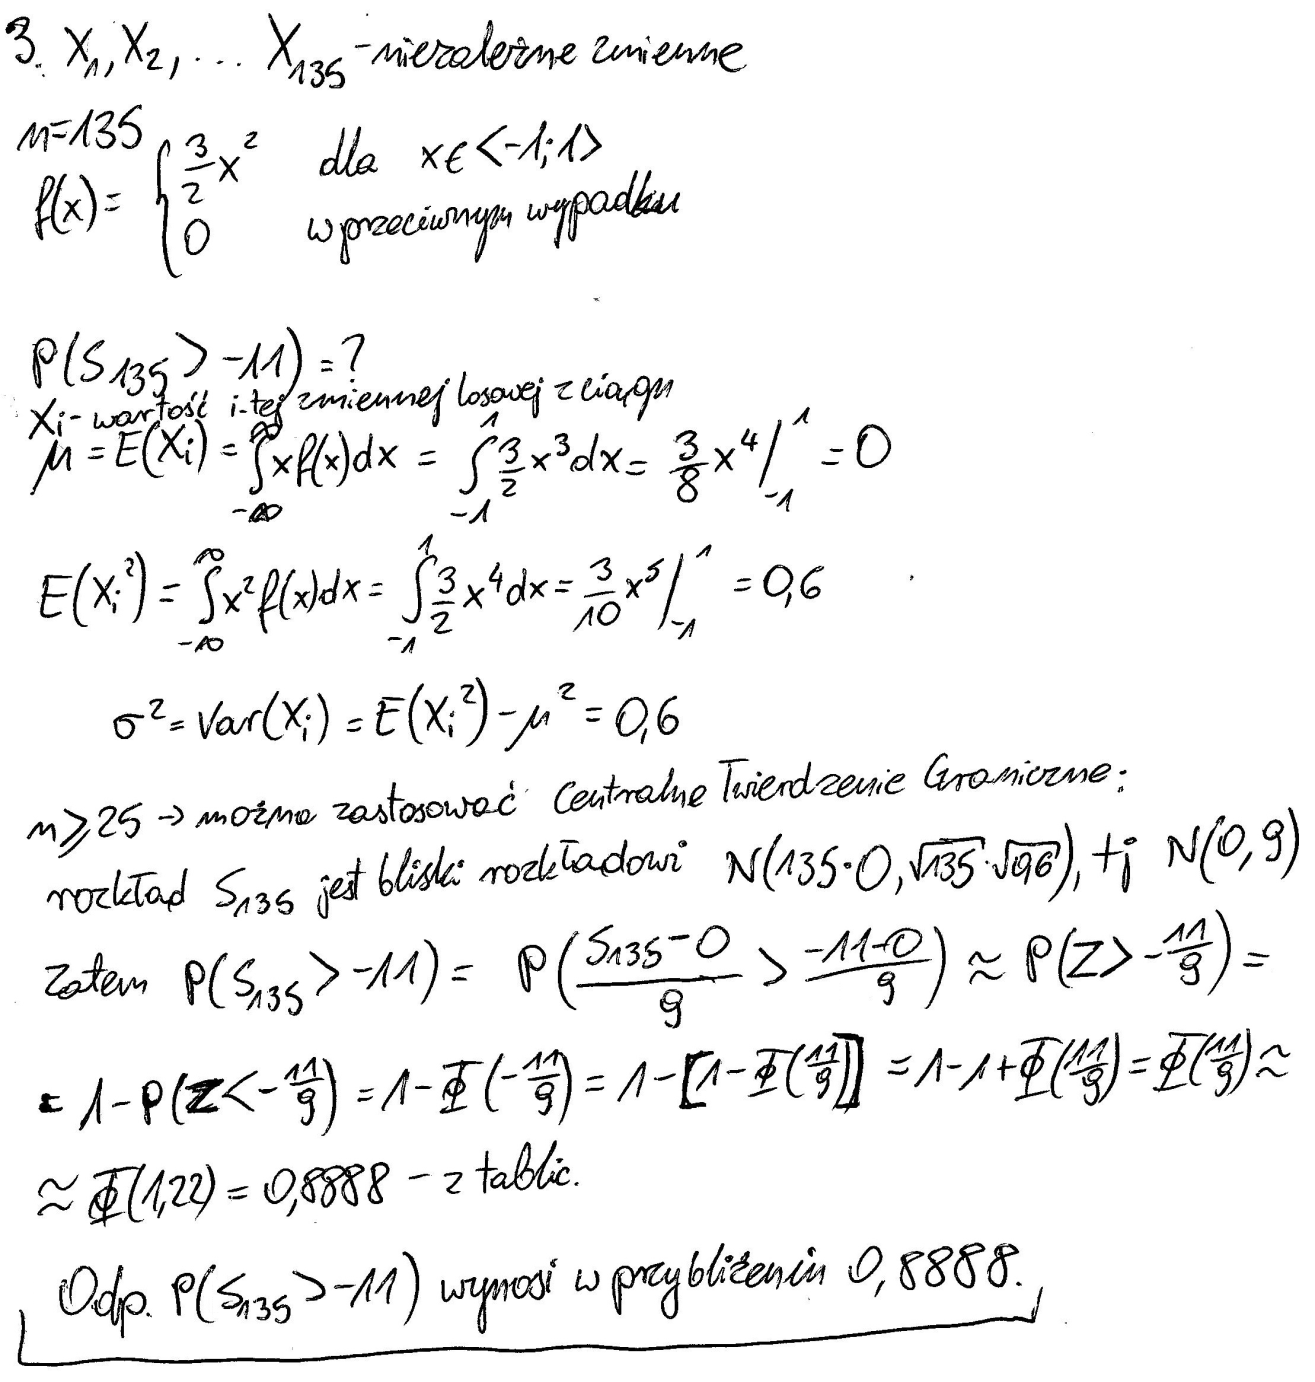 3. X₁, X₂, ... X₁₃₅ - niezależne zmienne
n=135
f(x) = { 3/2 x² dla x ∈ <-1; 1>
0 w przeciwnym wypadku
P(S₁₃₅ > -11) = ?
Xi - wartość i-tej zmiennej losowej z ciągu
μ = E(Xi) = ∫_{-∞}^{∞} x f(x) dx = ∫_{-1}^{1} 3/2 x³ dx = 3/8 x⁴ /_{-1}^{1} = 0
E(Xi²) = ∫_{-∞}^{∞} x² f(x) dx = ∫_{-1}^{1} 3/2 x⁴ dx = 3/10 x⁵ /_{-1}^{1} = 0,6
σ² = Var(Xi) = E(Xi²) - μ² = 0,6
n ⩾ 25 → można zastosować Centralne Twierdzenie Graniczne:
rozkład S₁₃₅ jest bliski rozkładowi N(135·0, √135·√0,6), tj N(0, 9)
Zatem P(S₁₃₅ > -11) = P((S₁₃₅ - 0)/9 > (-11-0)/9) ≈ P(Z > -11/9) =
= 1 - P(Z < -11/9) = 1 - Φ(-11/9) = 1 - [1 - Φ(11/9)] = 1 - 1 + Φ(11/9) = Φ(11/9) ≈
≈ Φ(1,22) = 0,8888 - z tablic.
Odp. P(S₁₃₅ > -11) wynosi w przybliżeniu 0,8888.